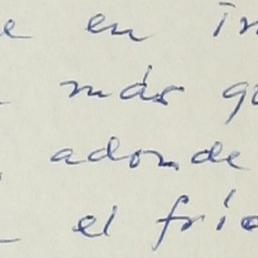 e en in
más qu
adonde
el frío